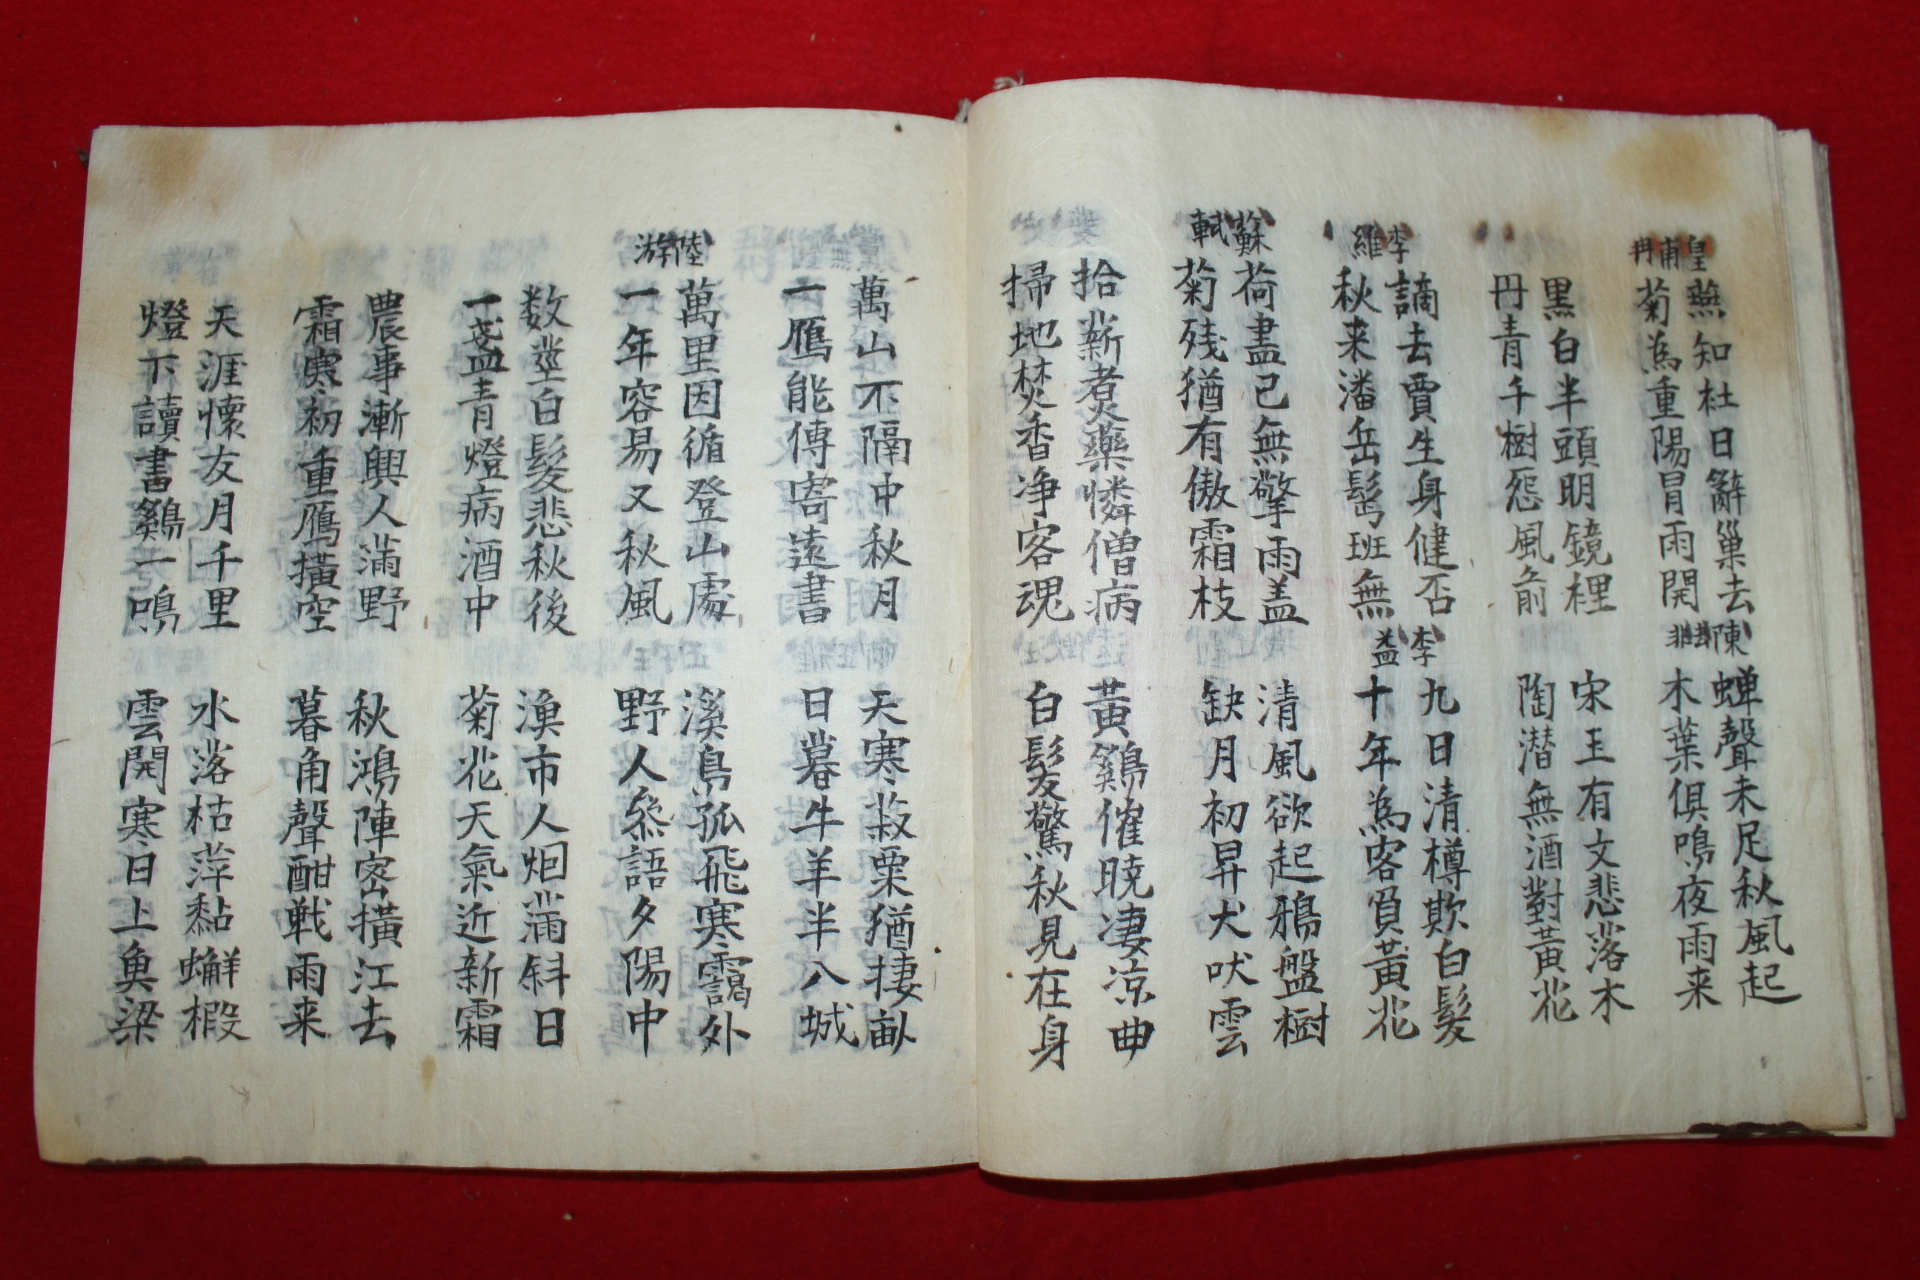 皇甫冉
燕知社日辭巢去
菊為重陽冒雨開
陳
蝉聲未足秋風起
木葉俱鳴夜雨来
黑白半頭明鏡裡
丹青千樹怨風前
宋玉有文悲落木
陶潜無酒對黃花
李維
謫去賈生身健否
秋来潘岳髩班無
李益
九日清樽欺白髮
十年為客負黃花
蘇軾
荷盡已無擎雨盖
菊残猶有傲霜枝
清風欲起鴉盤樹
缺月初昇犬吠雲
拾薪煮藥憐僧病
掃地焚香净客魂
黃鷄催曉凄凉曲
白髮驚秋見在身
萬山不隔中秋月
一鴈能傳寄遠書
天寒菽粟猶捿畝
日暮牛羊半入城
陸游
萬里因循登山處
一年容易又秋風
溪鳥孤飛寒靄外
野人叅語夕陽中
数莖白髮悲秋後
一盞青燈病酒中
漁市人烟滿斜日
菊花天氣近新霜
農事漸興人滿野
霜寒初重鴈橫空
秋鴻陣密橫江去
暮角聲酣戦雨来
天涯懷友月千里
燈下讀書鷄一鳴
水落枯萍黏蠏椴
雲開寒日上魚梁